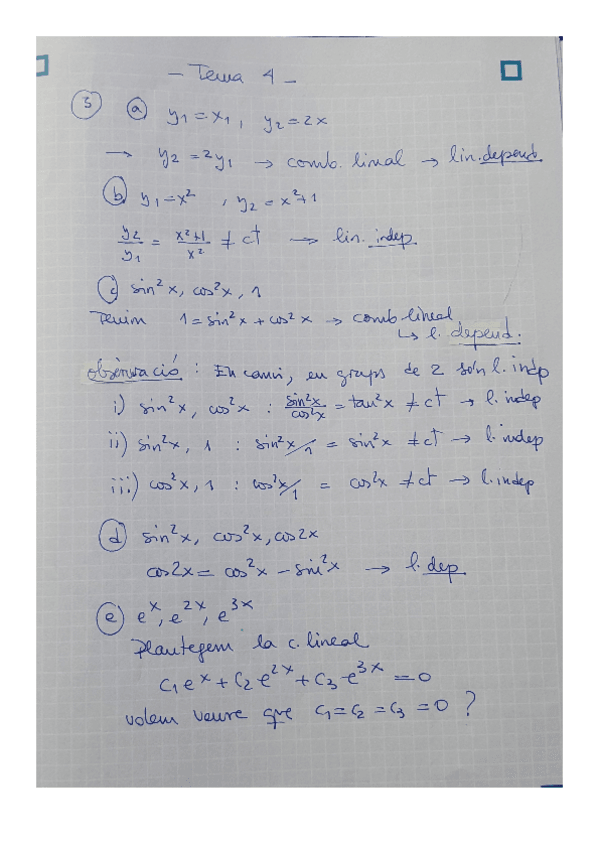 - Tema 4 -
3 a y₁ = x₁, y₂ = 2x
→ y₂ = 2y₁ → comb. lineal → lin. depend.
b y₁ = x², y₂ = x²+1
y₂/y₁ = x²+1/x² ≠ ct → lin. indep.
c sin²x, cos²x, 1
Tenim 1 = sin²x + cos²x → comb lineal
↳ l. depend.
observació : En canvi, en grups de 2 són l. indp
i) sin²x, cos²x : sin²x/cos²x = tan²x ≠ ct → l. indep
ii) sin²x, 1 : sin²x/1 = sin²x ≠ ct → l. indep
iii) cos²x, 1 : cos²x/1 = cos²x ≠ ct → l. indep
d sin²x, cos²x, cos2x
cos2x = cos²x - sin²x → l. dep
e eˣ, e²ˣ, e³ˣ
Plantegem la c. lineal
c₁eˣ + c₂e²ˣ + c₃e³ˣ = 0
volem veure que c₁ = c₂ = c₃ = 0 ?